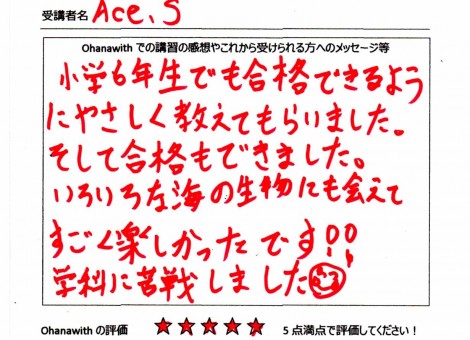 受講者名 Ace.S
Ohanawith での講習の感想やこれから受けられる方へのメッセージ等
小学6年生でも合格できるよう
にやさしく教えてもらいました。
そして合格もできました。
いろいろな海の生物にも会えて
すごく楽しかったです!!
学科に苦戦しました
Ohanawith の評価 ★★★★★ 5点満点で評価してください！